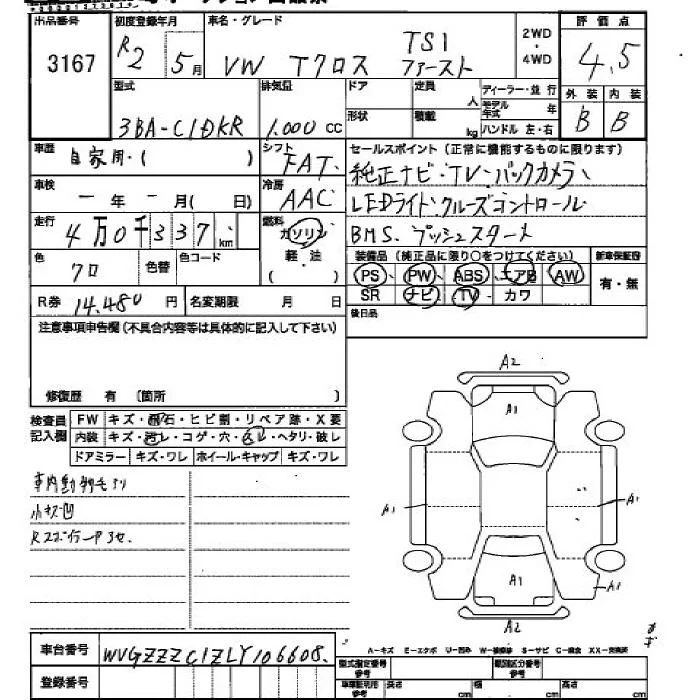 出品番号 初度登録年月 車名・グレード 2WD・4WD 評価点
3167 R2 5月 VW Tクロス TSI ファースト 4.5
型式 排気量 ドア 定員 人 ディーラー・並行 外装 内装
3BA-C1DKR 1.000 cc 形状 積載 kg モデル年式 年 ハンドル 左・右 B B
車歴 自家用・( ) シフト FAT セールスポイント (正常に機能するものに限ります)
純正ナビ・TV・バックカメラ
車検 ー年 ー月( 日) 冷房 AAC LEDライト クルーズコントロール
走行 4万0千337km 燃料 ガソリン 軽油 ( ) BMS. プッシュスタート
色 クロ 色替 色コード 装備品 (純正品に限り○をつけてください) 新車保証書
PS PW ABS エアB AW 有・無
R券 14.480 円 名変期限 月 日 SR ナビ TV カワ
注意事項申告欄 (不具合内容等は具体的に記入して下さい) 後日品
修復歴 有 〔箇所 〕
検査員記入欄 FW キズ・飛石・ヒビ割・リペア跡・X要
内装 キズ・汚レ・コゲ・穴・スレ・ヘタリ・破レ
ドアミラー キズ・ワレ ホイール・キャップ キズ・ワレ
車内動物毛アリ
小キズ凹
A2
A1
A1
A1
A1
A1
A2
車台番号 WVGZZZC1ZLY106608.
A-キズ E-エクボ U-凹み W-補修跡 S-サビ C-腐食 XX-交換済
登録番号 型式指定番号 参考 類別区分番号 参考
車庫証明用 参考 長さ cm 幅 cm 高さ cm